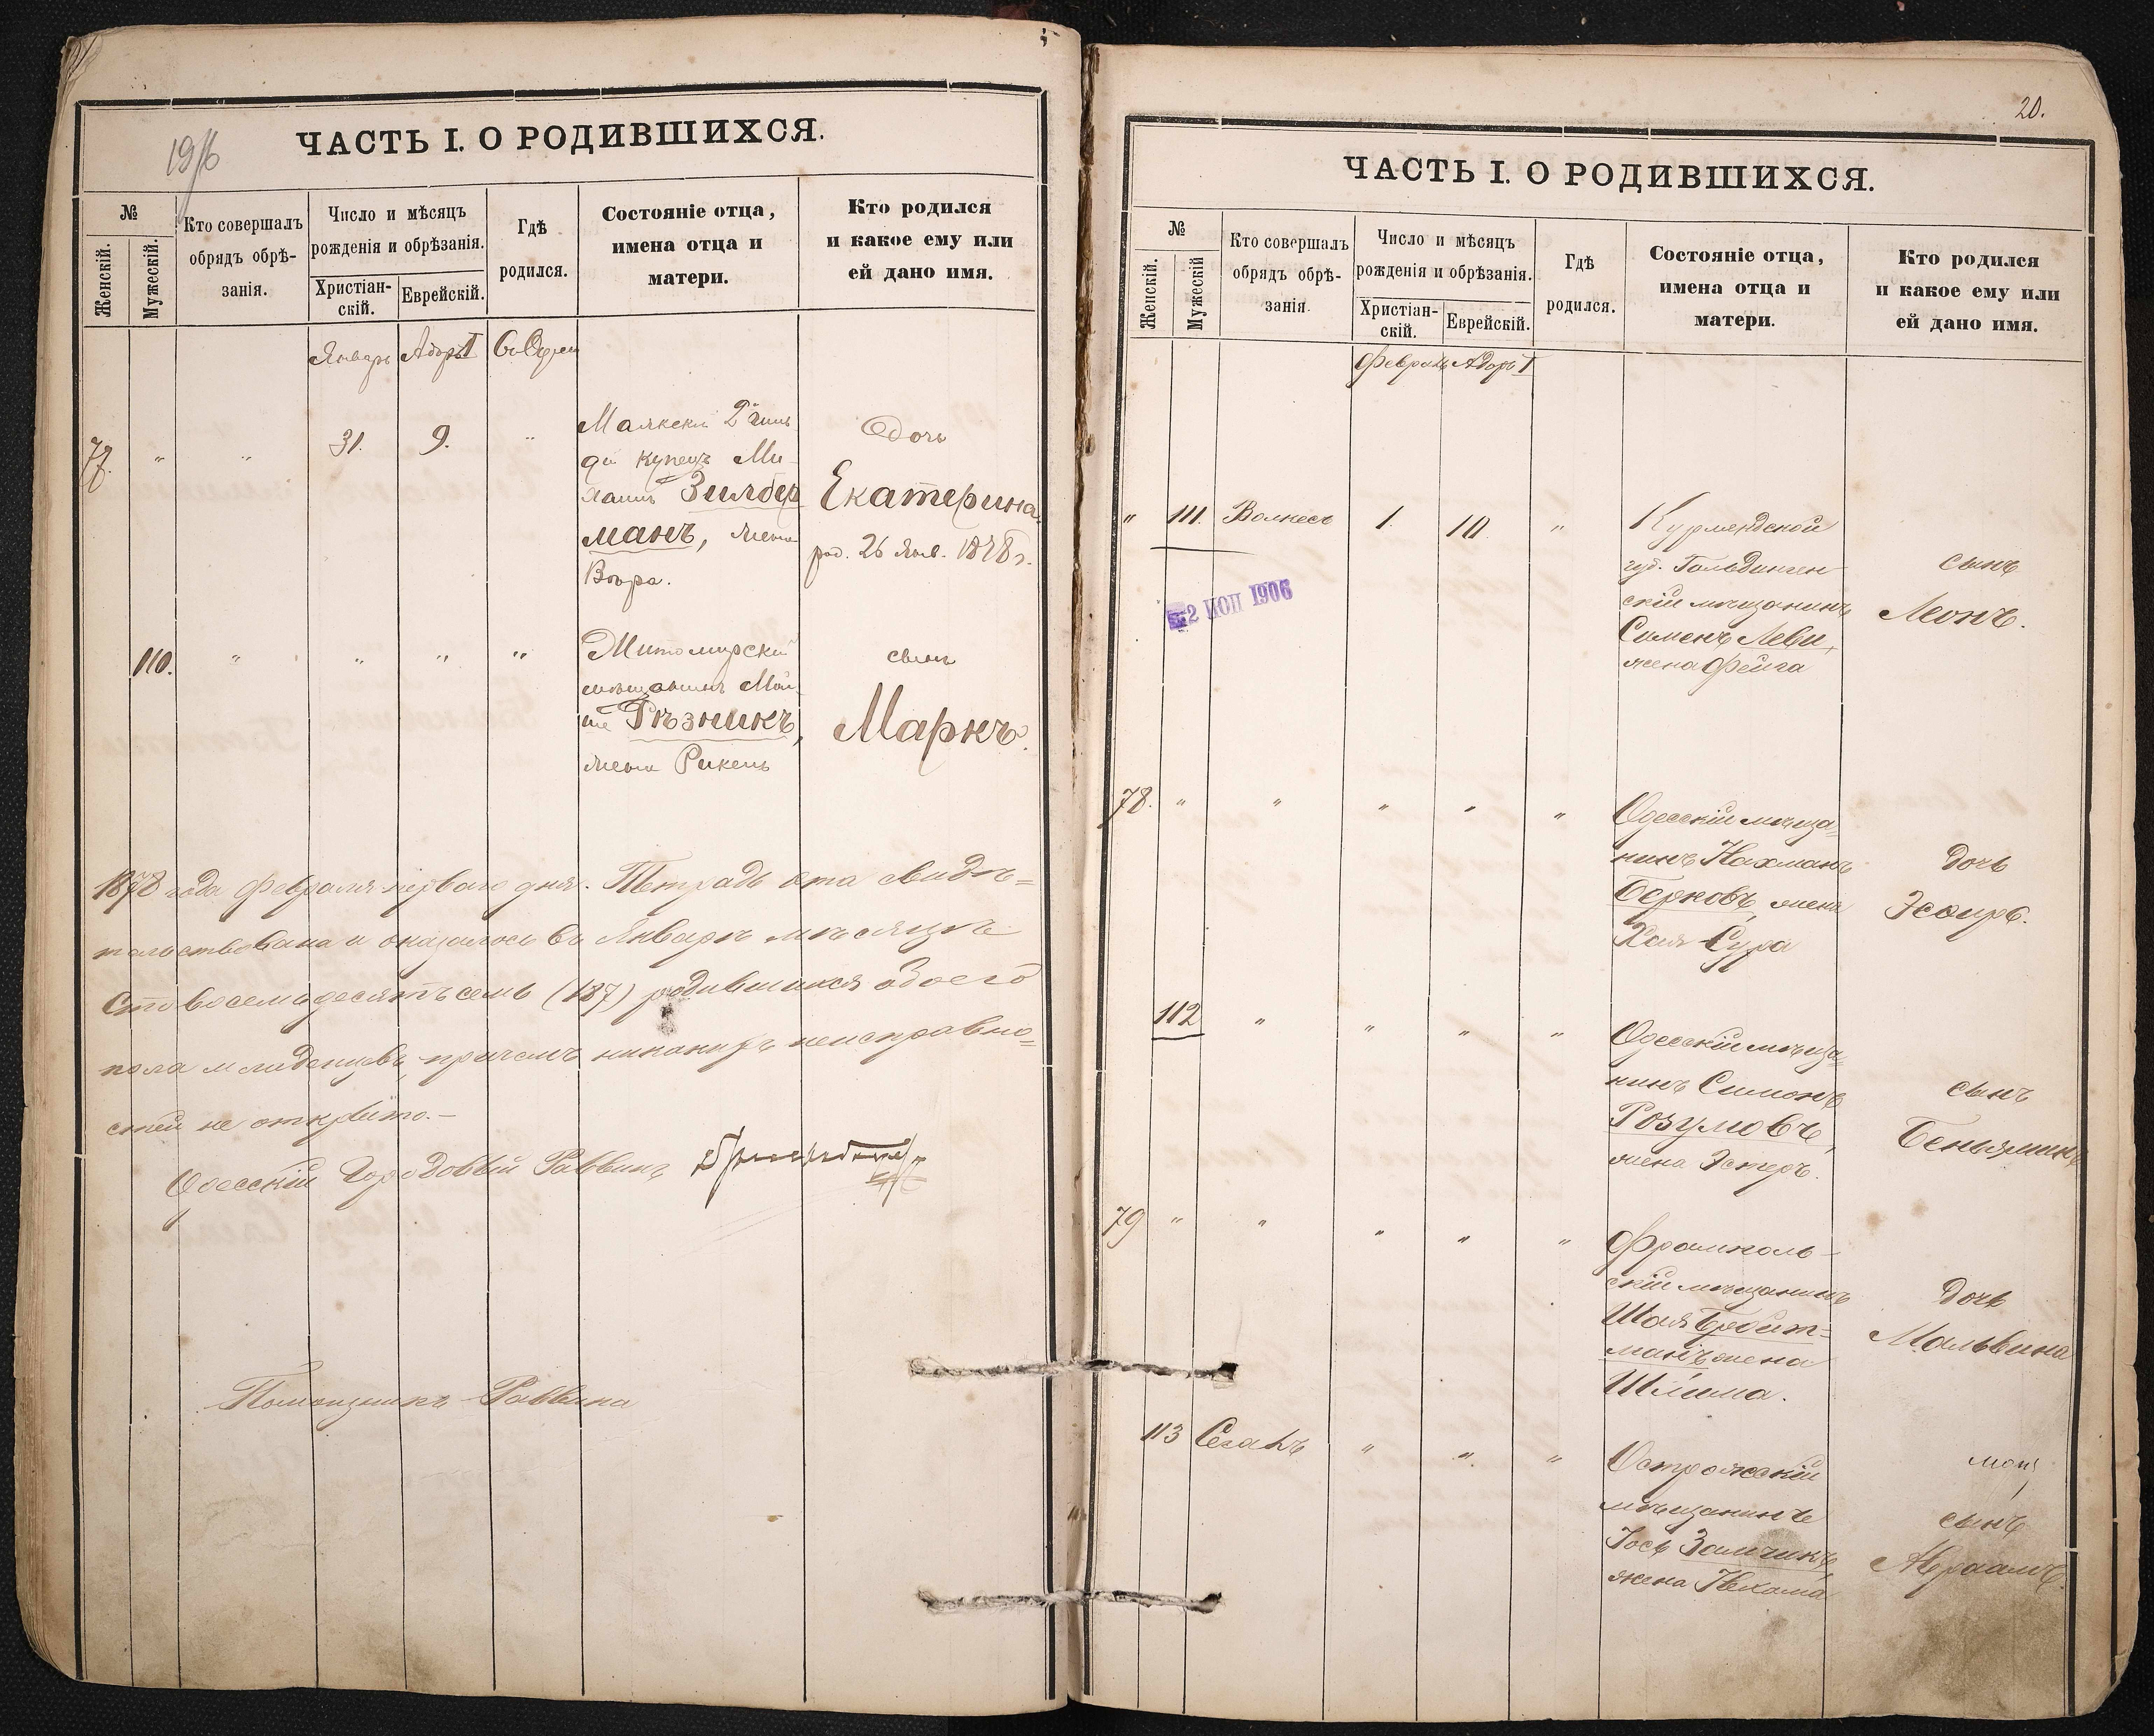 ЧАСТЬ I. О РОДИВШИХСЯ.
№
Женскій.
Мужескій.
Кто совершалъ
обрядъ обрѣ-
занія.
Число и мѣсяцъ
рожденія и обрѣзанія.
Христіан-
скій.
Еврейскій.
Гдѣ
родился.
Состояніе отца,
имена отца и
матери.
Кто родился
и какое ему или
ей дано имя.
Январь Адаръ I
77. " " 31. 9. "
Маякскій 2й гиль
діи купецъ Ми-
хаилъ Зильбер
манъ, жена
Вѣра.
Дочь
Екатерина.
род. 26 Янв. 1878 г.
110. " " " "
Житомирскій
мѣщанинъ Мой-
ше Рѣзникъ,
жена Рикель
сынъ
Маркъ.
1878 года Февраля перваго дня. Тетрадь эта свидѣ=
тельствована и оказалось въ Январѣ мѣсяцѣ
Сто восемьдесятъ семь (187) родившихся обоего
пола младенцевъ, причемъ никакихъ неисправно=
стей не открыто.—
Одесскій Городовый Раввинъ
Помощникъ Раввина
20.
ЧАСТЬ I. О РОДИВШИХСЯ.
№
Женскій.
Мужескій
Кто совершалъ
обрядъ обрѣ-
занія.
Число и мѣсяцъ
рожденія и обрѣзанія.
Христіан-
скій.
Еврейскій.
Гдѣ
родился.
Состояніе отца,
имена отца и
матери.
Кто родился
и какое ему или
ей дано имя.
Февраль Адаръ I
" 111. Волкесъ 1. 10. "
Курляндской
губ. Гольдинген-
скій мѣщанинъ
Сименъ Леви,
жена Фейга
сынъ
Леонъ.
2 ИЮП 1906
78. " " " " "
Одесскій мѣща=
нинъ Нахманъ
Берковъ, жена
Хая-Сура
дочь
Эсѳирь.
112 " " " "
Одесскій мѣща=
нинъ Симонъ
Розумовъ,
жена Эстеръ.
сынъ
Беньяминъ
79 " " " " "
Фрампол-
скій мѣщанинъ
Шая Бройт=
манъ жена
Шлима.
дочь
Мальвина
113 Сегалъ " " "
Острожскій
мѣщанинъ
Іось Зайчикъ,
жена Нехама
сынъ
Авраамъ.